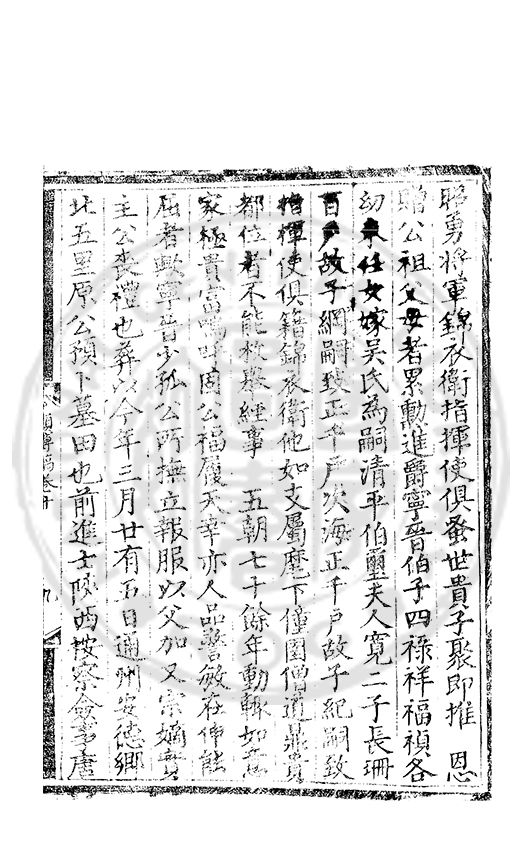 昭勇將軍錦衣衛指揮使俱蚤世貴子聚即推　恩
贈公祖父母者累勳進爵寧晉伯子四祿祥福禎各
幼未任女嫁吳氏為嗣清平伯璽夫人寬二子長珊
百戶故子綱嗣致正千戶次海正千戶故子紀嗣致
指揮使俱籍錦衣衛他如支屬麾下僮園僧道鼎貴
都位者不能枚舉經事　五朝七十餘年動輒如意
家極貴富嗚呼固公福履天幸亦人品警敏在伸能
屈者歟寧晉少孤公所撫立報服以父加又宗嫡實
主公喪禮也葬以今年三月廿有五日通州安德鄉
北五里原公預卜墓田也前進士陝西按察僉事唐
九